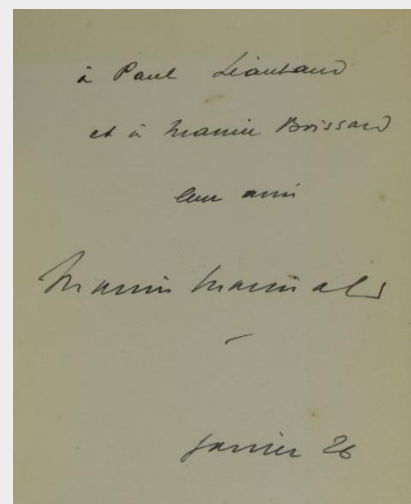 à Paul Léautaud
et à Maurice Boissard
leur ami
Maurice
Janvier 26